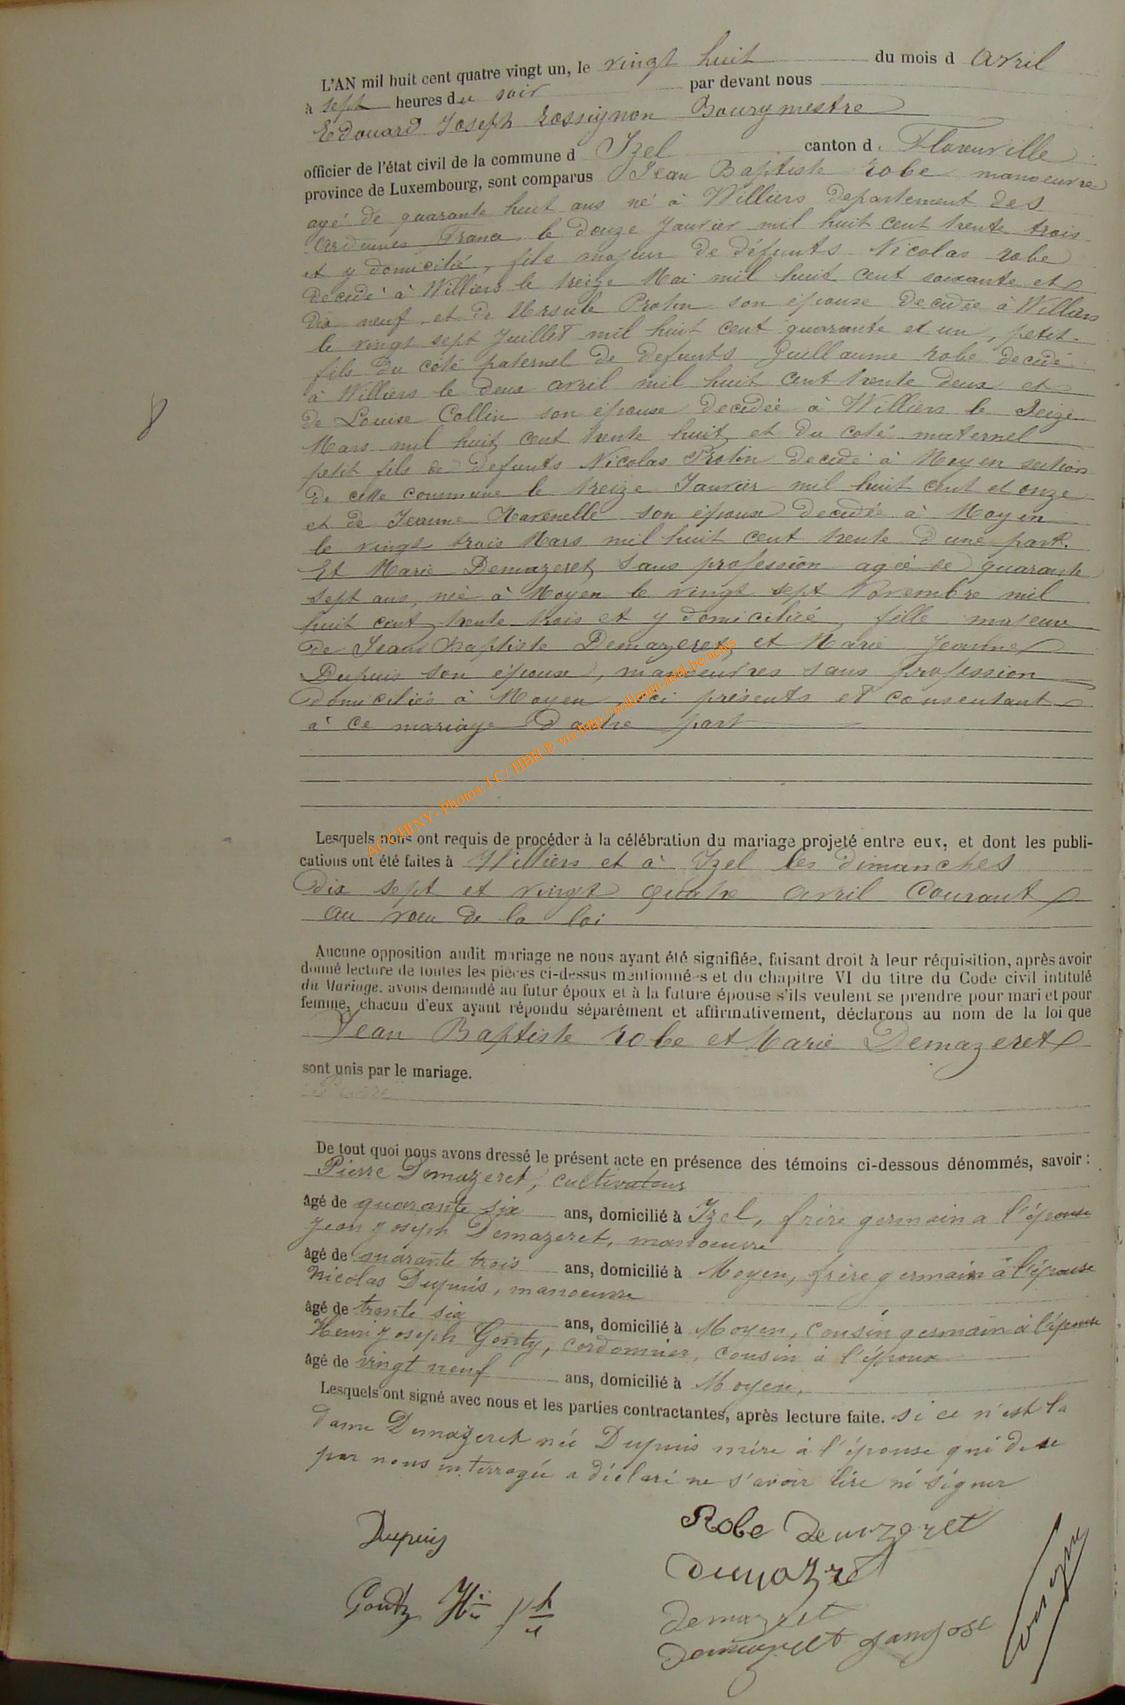 L'AN mil huit cent quatre vingt un, le vingt huit du mois d avril
à sept heures du soir par devant nous
Edouard Joseph Rossignon Bourgmestre
officier de l'état civil de la commune d Izel canton d. Florenville
province de Luxembourg, sont comparus Jean Baptiste Robe manoeuvre
agé de quarante huit ans né à Williers departement des
Ardennes France le douze Janvier mil huit cent trente trois
et y domicilié, fils majeur de défunts Nicolas Robe
décédé à Williers le treize Mai mil huit cent soixante et
dix neuf et de Ursule Protin son épouse decedée à Williers
le vingt sept Juillet mil huit cent quarante et un, petit-
fils du côté paternel de defunts Guillaume Robe decedé
à Williers le deux avril mil huit cent trente deux et
de Louise Collin son épouse decedeé à Williers le Seize
Mars mil huit cent trente huit et du coté maternel
petit fils de defunts Nicolas Protin decedé à Moyen section
de cette commune le treize Janvier mil huit cent et onze
et de Jeanne son épouse decedée à Moyen
le vingt trois Mars mil huit cent trente d'une part.
Et Marie Demazeret, sans profession agée de quarante
sept ans, née à Moyen le vingt sept Novembre mil
huit cent trente trois et y domicilieé, fille majeure
de Jean Baptiste Demazeret et Marie Jeanne
Dupuis son épouse, manoeuvres sans profession
domiciliés à Moyen ici présents et consentant
à ce mariage D'autre part
Lesquels nous ont requis de procéder à la célébration du mariage projeté entre eux, et dont les publi-
cations ont été faites à Williers et à Izel les dimanches
dix sept et vingt quatre avril courant
au voeu de la loi
Aucune opposition audit mariage ne nous ayant été signifiée, faisant droit à leur réquisition, après avoir
donné lecture de toutes les pièces ci-dessus mentionnées et du chapitre VI du titre du Code civil intitulé
du Mariage. avons demandé au futur époux et à la future épouse s'ils veulent se prendre pour mari et pour
femme, chacun d'eux ayant répondu séparément et affirmativement, déclarons au nom de la loi que
Jean Baptiste Robe et Marie Demazeret
sont unis par le mariage.
De tout quoi nous avons dressé le présent acte en présence des témoins ci-dessous dénommés, savoir :
Pierre Demazeret, cultivateur
âgé de quarante six ans, domicilié à Izel, frère germain a l'épouse
Jean Joseph Demazeret, manoeuvre
âgé de quarante trois ans, domicilié à Moyen, frère germain à l'épouse
Nicolas Dupuis, manoeuvre
âgé de trente six ans, domicilié à Moyen, cousin germain à l'épouse
Henri Joseph Gonty, cordonnier, cousin à l'époux
âgé de vingt neuf ans, domicilié à Moyen.
Lesquels ont signé avec nous et les parties contractantes, après lecture faite. si ce n'est la
dame Demazeret née Dupuis mère à l'épouse qui de ce
par nous interrogée a déclaré ne s'avoir lire ni signer
Robe Demazeret
Dupuis
Demazeret
Demazeret